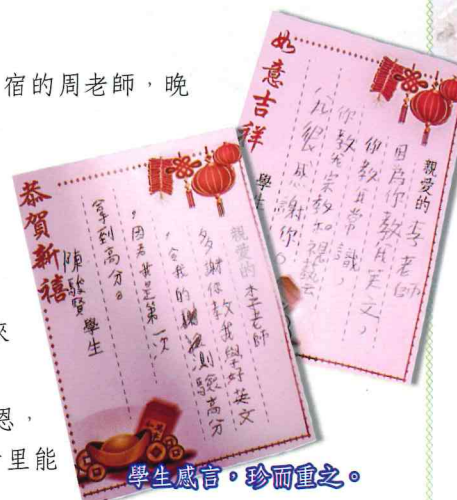 宿的周老師,晚
來
恩,
里能
如意吉祥
親愛的 李老師
因爲你教我英文,
你教我常識,
你教我宗教和視藝
我很感謝你。
學生
恭賀新禧
親愛的 李老師
多謝你教我學好英文
,令我的測驗高分
,因為我是第一次
拿到高分。
陳駿賢 學生
學生感言,珍而重之。